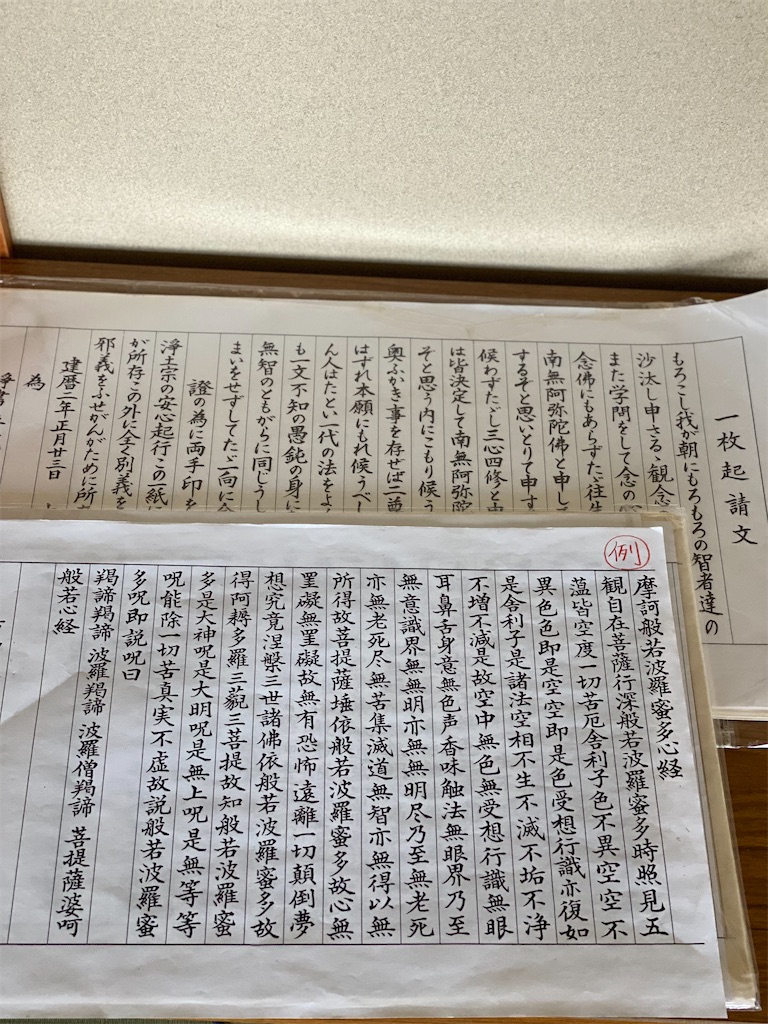 一枚起請文
もろこし我が朝にもろもろの智者達の
沙汰し申さるゝ観念の
また学問をして念の
念佛にもあらずたゞ往生
南無阿弥陀佛と申して
するぞと思いとりて申す
候わずたゞし三心四修と申
は皆決定して南無阿弥陀
そと思う内にこもり候う
奥ふかき事を存せば二尊
はずれ本願にもれ候うべし
ん人はたとい一代の法をよ
も一文不知の愚鈍の身に
無智のともがらに同じうし
まいをせずしてたゞ一向に念
證の為に両手印を
浄土宗の安心起行この一紙に
が所存この外に全く別義を
邪義をふせがんがために所
建暦二年正月廿三日
為
例
摩訶般若波羅蜜多心経
観自在菩薩行深般若波羅蜜多時照見五
蘊皆空度一切苦厄舎利子色不異空空不
異色色即是空空即是色受想行識亦復如
是舎利子是諸法空相不生不滅不垢不浄
不増不減是故空中無色無受想行識無眼
耳鼻舌身意無色声香味触法無眼界乃至
無意識界無無明亦無無明尽乃至無老死
亦無老死尽無苦集滅道無智亦無得以無
所得故菩提薩埵依般若波羅蜜多故心無
罣礙無罣礙故無有恐怖遠離一切顛倒夢
想究竟涅槃三世諸佛依般若波羅蜜多故
得阿耨多羅三藐三菩提故知般若波羅蜜
多是大神呪是大明呪是無上呪是無等等
呪能除一切苦真実不虚故説般若波羅蜜
多呪即説呪曰
羯諦羯諦 波羅羯諦 波羅僧羯諦 菩提薩婆呵
般若心経